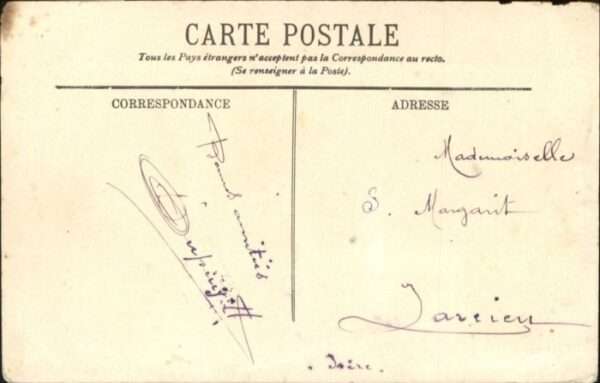 CARTE POSTALE
Tous les Pays étrangers n'acceptent pas la Correspondance au recto.
(Se renseigner à la Poste).
CORRESPONDANCE
ADRESSE
Bonnes amitiés
Mademoiselle
S. Margarit
Jarcieu
Isère.